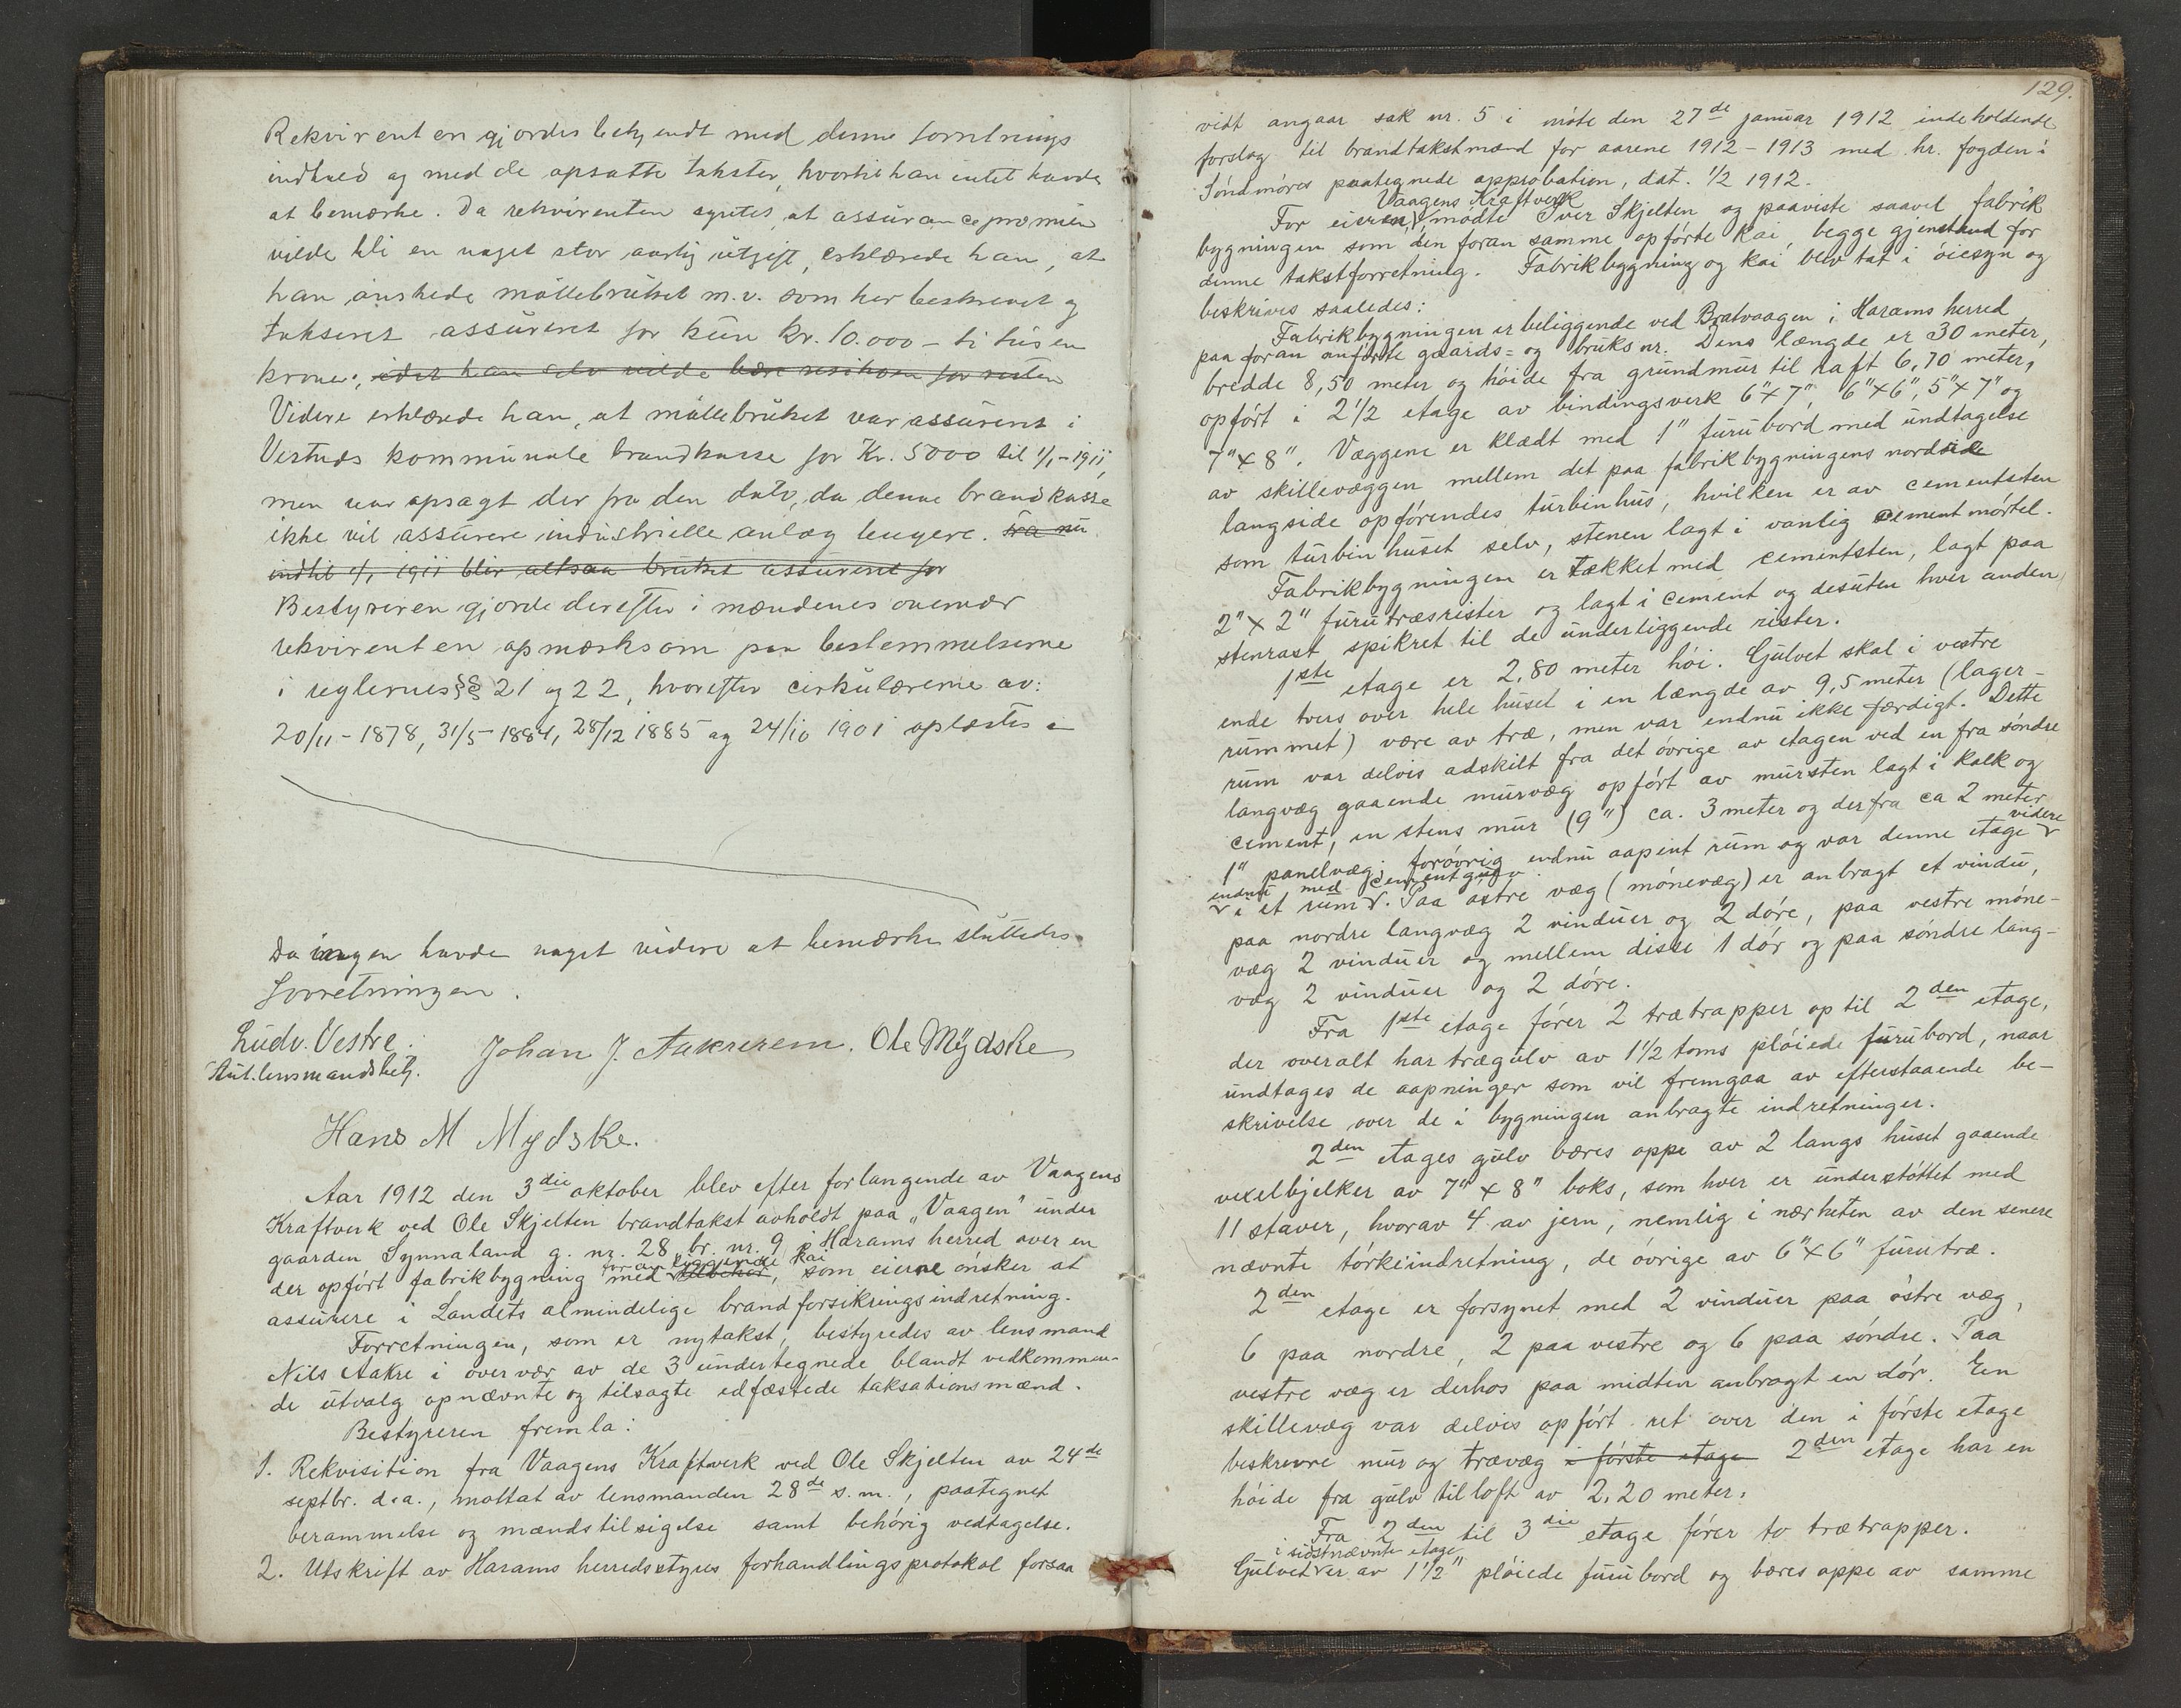 Rekvirenten gjordes bekjendt med denne forretnings
indhold og med de opsatte takster, hvortil han intet havde
at bemærke. Da rekvirenten syntes, at assurancepræmien
vilde bli en noget stor aarlig utgift, erklærede han, at
han ønskede møllebruket m.v. som her beskrevet og
takseret assureret for kun kr. 10.000 - ti tusen
kroner, idet han selv vilde bære risikoen for resten
Videre erklærede han, at møllebruket var assureret i
Vestnes kommunale brandkasse for Kr. 5000 til 1/1-1911,
men var opsagt der fra den dato, da denne brandkasse
ikke vil assurere industrielle anlæg lengere. Fra nu
indtil 1/1 1911 blir altsaa bruket assureret for
Bestyreren gjorde derefter i mændenes overvær
rekvirenten opmerksom paa bestemmelserne
i reglernes §§ 21 og 22, hvorefter cirkulærerne av:
20/11-1878, 31/5-1884, 28/12 1885 og 24/10 1901 oplæstes
Da ingen havde noget videre at bemærke sluttedes
forretningen.
Ludv. Vestre. Johan J. Aakrerem. Ole Mÿdske
Aut. lensmandsbetj.
Hans M Mydske.
Aar 1912 den 3die oktober blev efter forlangende av Vaagens
Kraftverk ved Ole Skjelten brandtakst avholdt paa „Vaagen" under
gaarden Synnaland g. nr. 28 br. nr. 9 i Harams herred over en
foran liggende kai
der opført fabrikbygning med tilbehør, som eierne ønsker at
assurere i Landets almindelige brandforsikringsindretning.
Forretningen, som er nytakst, bestyredes av lensmand
Nils Aakre i overvær av de 3 undertegnede blandt vedkommen-
de utvalg opnævnte og tilsagte edfæstede taksationsmænd.
Bestyreren fremla:
1. Rekvisition fra Vaagens Kraftverk ved Ole Skjelten av 24de
septbr. d.a., mottat av lensmanden 28de s.m., paategnet
berammelse og mændstilsigelse samt behørig vedtagelse.
2. Utskrift av Harams herredsstyres forhandlingsprotokol forsaa
129.
vidt angaar sak nr. 5 i møte den 27de januar 1912 indeholdende
forslag til brandtakstmænd for aarene 1912-1913 med hr. fogden i
Søndmøres paategnede approbation, dat. 1/2 1912.
Vaagens Kraftverk
For eieren, møtte Iver Skjelten og paaviste saavel fabrik
bygningen som den foran samme opførte kai, begge gjenstand for
denne takstforretning. Fabrikbygning og kai blev tat i øiesyn og
beskrives saaledes:
Fabrikbygningen er beliggende ved Bratvaagen i Harams herred
paa foran anførte gaards= og bruks nr. Dens længde er 30 meter,
bredde 8,50 meter og høide fra grundmur til raft 6,70 meter,
opført i 2 1/2 etage av bindingsverk 6"x7", 6"x6", 5"x7" og
7"x8". Væggene er klædt med 1" furubord med undtagelse
av skillevæggen mellem det paa fabrikbygningens nordside
langside opførendes turbinhus, hvilken er av cementsten
som turbinhuset selv, stenen lagt i vanlig cementmørtel.
Fabrikbygningen er tækket med cementsten, lagt paa
2"x2" furutræsrister og lagt i cement og desuten hver anden
stenrast spikret til de underliggende rister.
1ste etage er 2,80 meter høi. Gulvet skal i vestre
ende tvers over hele huset i en længde av 9,5 meter (lager-
rummet) være av træ, men var endnu ikke færdigt. Dette
rum var delvis adskilt fra det øvrige av etagen ved en fra søndre
langvæg gaaende murvæg opført av mursten lagt i kalk og
cement, en stens mur (9") ca. 3 meter og derfra ca 2 meter
videre
1" panelvæg; forøvrig endnu aapent rum og var denne etage
endnu med cementgulv
i et rum. Paa østre væg (mønevæg) er anbragt et vindu,
paa nordre langvæg 2 vinduer og 2 døre, paa vestre møne-
væg 2 vinduer og mellem disse 1 dør og paa søndre lang-
væg 2 vinduer og 2 døre.
Fra 1ste etage fører 2 trætrapper op til 2den etage,
der overalt har trægulv av 1 1/2 toms pløiede furubord, naar
undtages de aapninger som vil fremgaa av efterstaaende be-
skrivelse over de i bygningen anbragte indretninger.
2den etages gulv bæres oppe av 2 langs huset gaaende
vexelbjelker av 7"x8" boks, som hver er understøttet med
11 staver, hvorav 4 av jern, nemlig i nærheten av den senere
nævnte tørkeindretning, de øvrige av 6"x6" furutræ.
2den etage er forsynet med 2 vinduer paa østre væg,
6 paa nordre, 2 paa vestre og 6 paa søndre. Paa
vestre væg er derhos paa midten anbragt en dør. En
skillevæg var delvis opført ret over den i første etage
beskrevne mur og trævæg i første etage 2den etage har en
høide fra gulv til loft av 2,20 meter.
Fra 2den til 3die etage fører to trætrapper.
i sidstnævnte etage
Gulvet er av 1 1/2" pløiede furubord og bæres oppe av samme